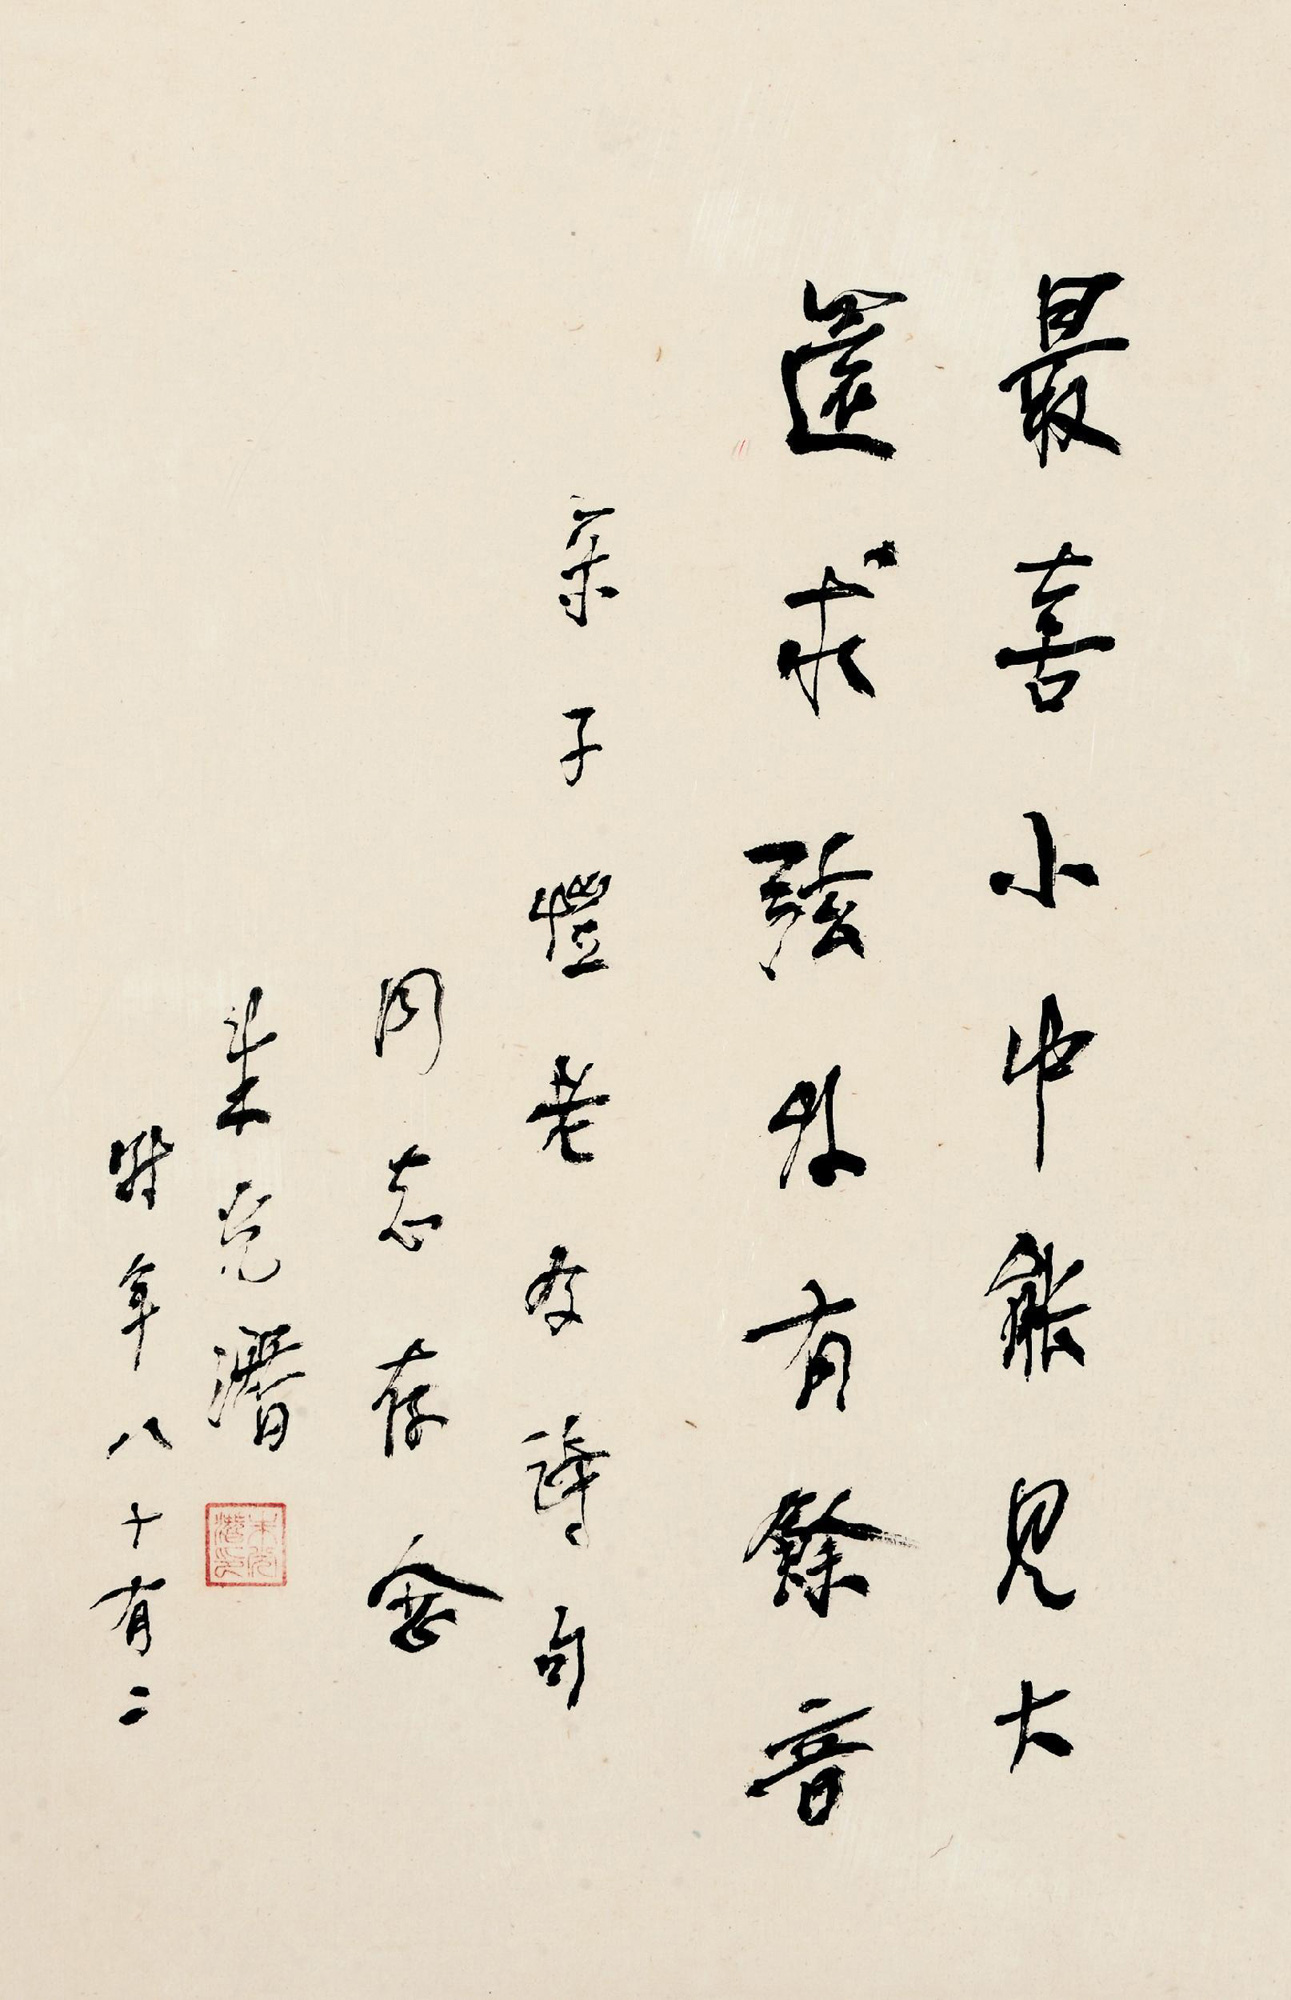 最喜小中能見大
還求弦外有餘音
录子愷老友詩句
同志存念
朱光潛
時年八十有二
朱光潛印